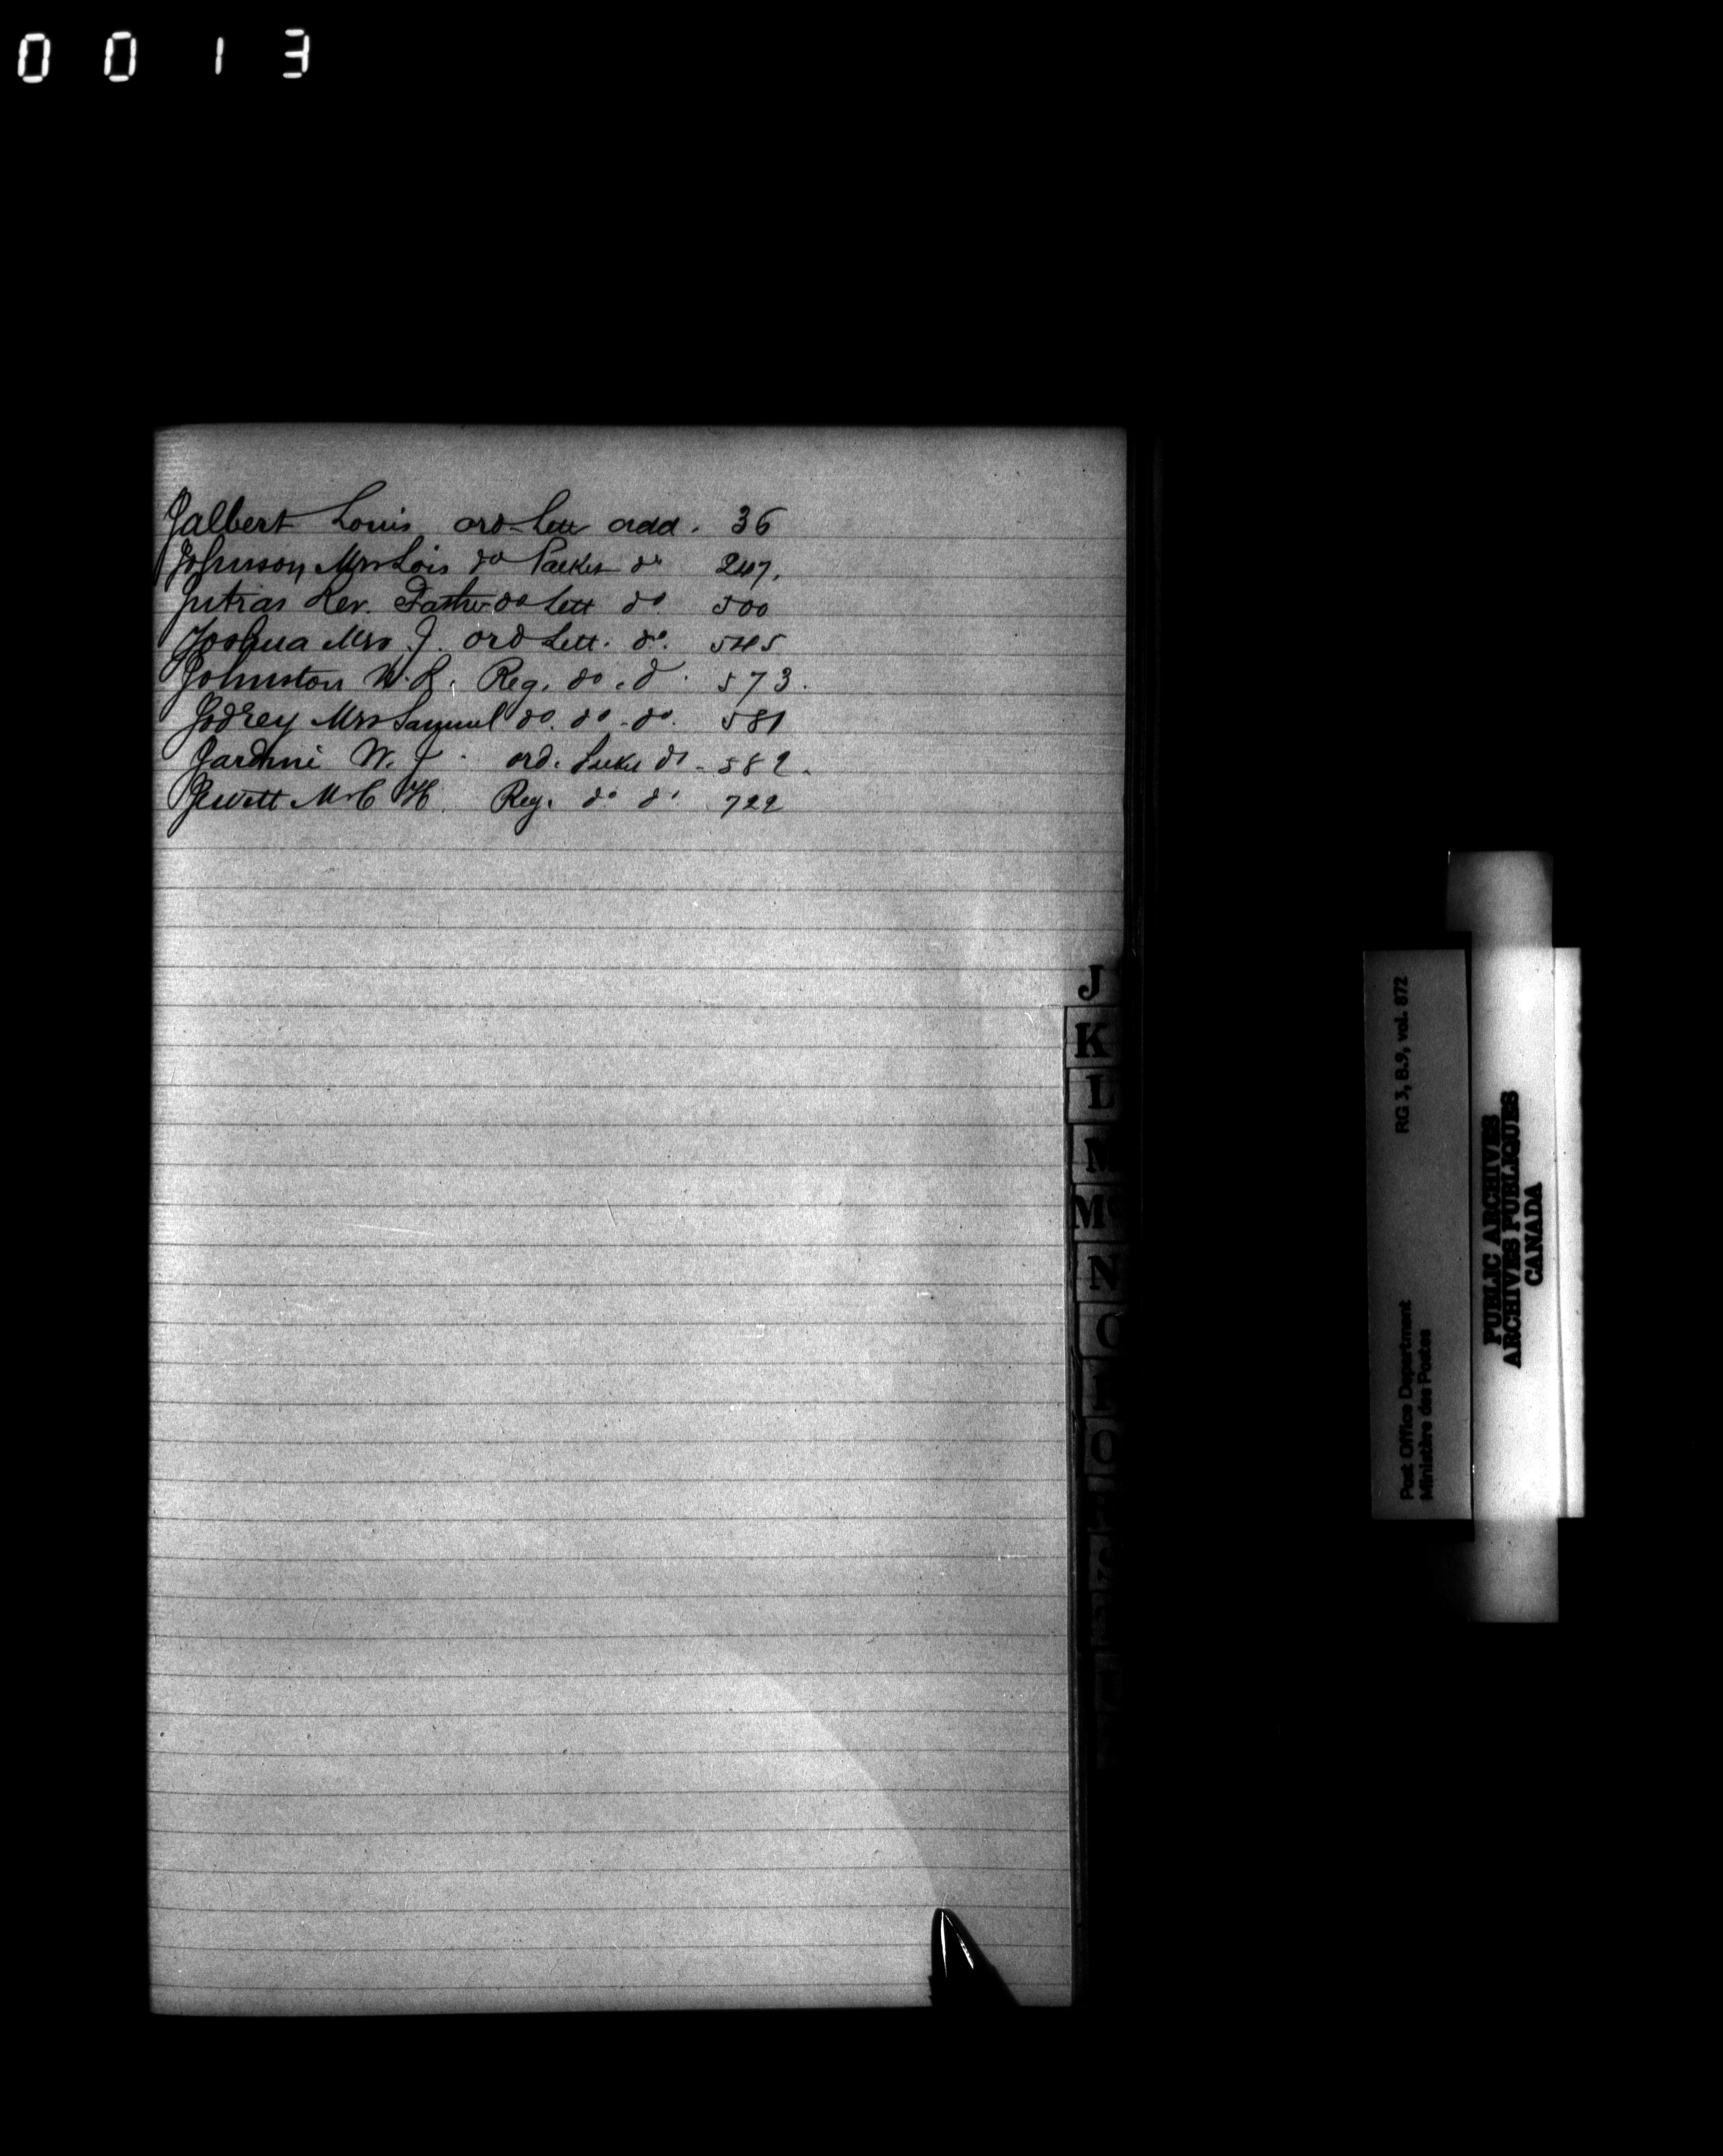 0013
Jalbert Louis ord Lett add. 36
Johnson Mrs Lois do Packet do 247.
Jutras Rev. Father do Lett do. 500
Joshua Mrs J. ord Lett. do. 545
Johnston W. R. Reg. do. d. 573.
Jodrey Mrs Samuel do. do. do. 581
Jardine W. J. ord. do 582.
Jewett Mr C H. Reg. do do 722
J
K
L
M
Mc
N
O
RG 3, B.9, vol. 872
Post Office Department
Ministère des Postes
PUBLIC ARCHIVES
ARCHIVES PUBLIQUES
CANADA